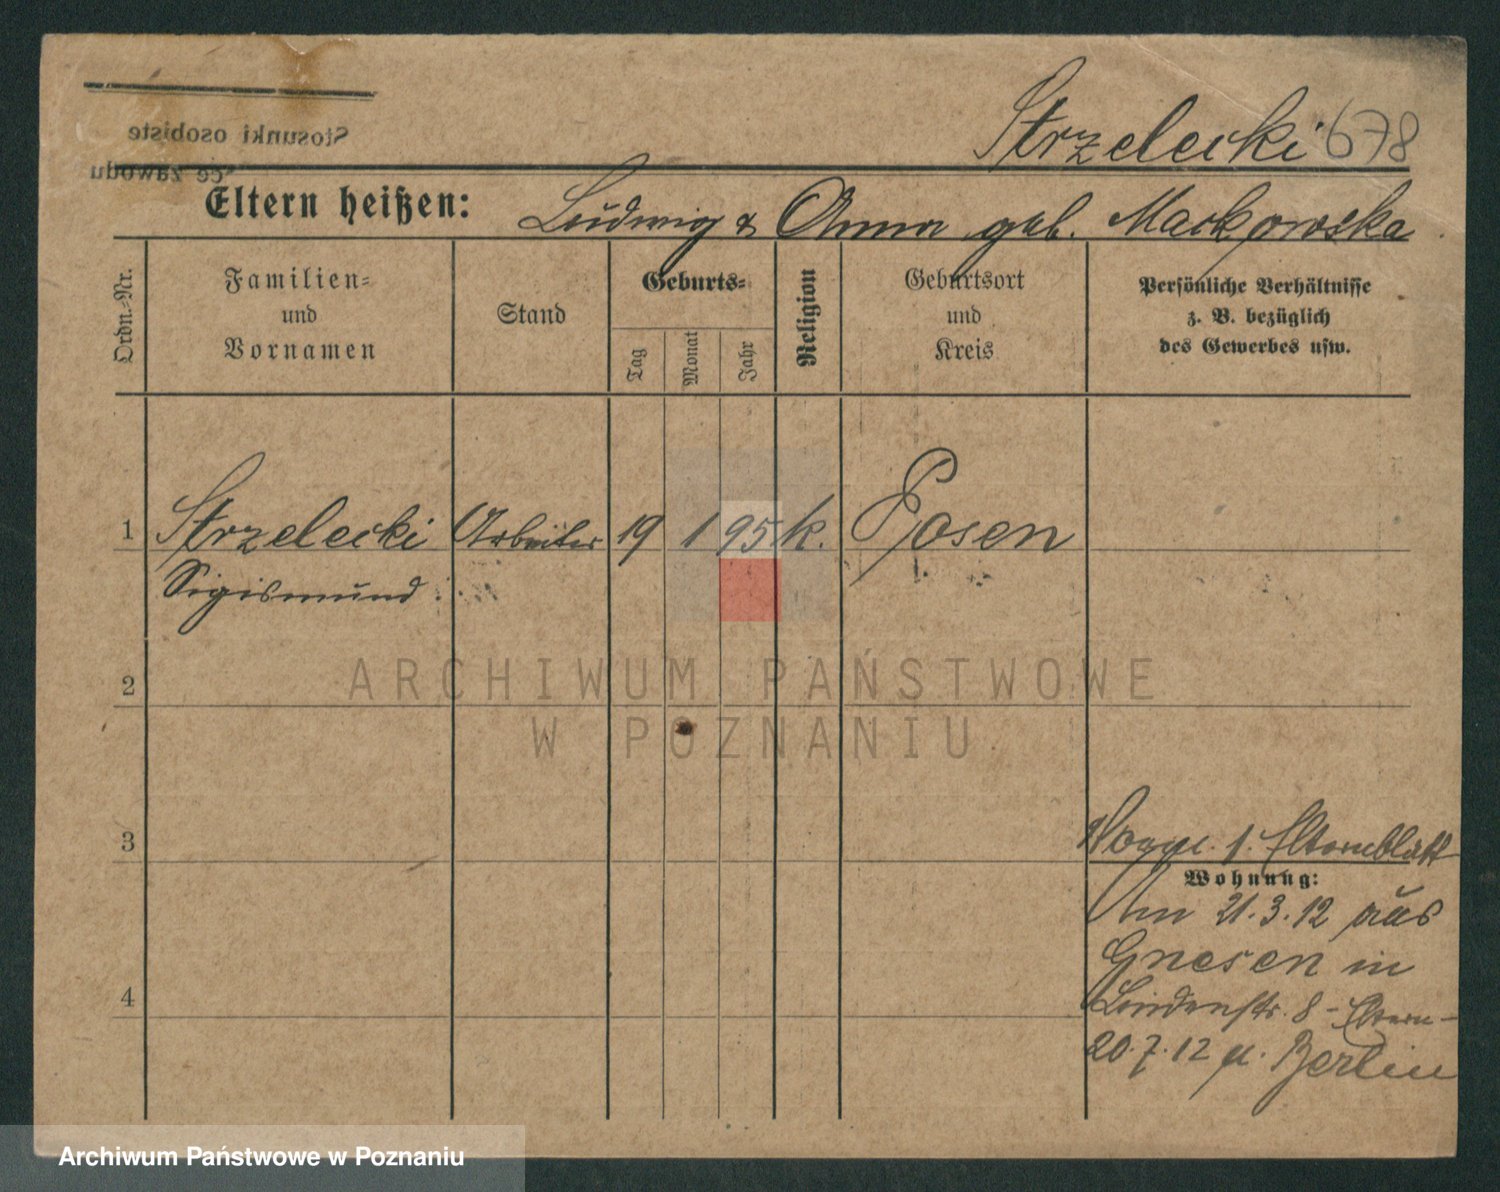 Stosunki osobiste
ce zawodu
Strzelecki 678
Eltern heißen: Ludwig & Anna geb. Mackowska
Ordn.-Nr.
Familien-
und
Vornamen
Stand
Geburts-
Tag
Monat
Jahr
Religion
Geburtsort
und
Kreis
Persönliche Verhältnisse
z. B. bezüglich
des Gewerbes usw.
1 Strzelecki Arbeiter 19 1 95 k. Posen
Sigismund
2
ARCHIWUM PAŃSTWOWE
W POZNANIU
3
Elternblatt
Wohnung:
Am 21.3.12 aus
Gnesen in
Lindenstr. 8 - Eltern -
4
20.7.12 n. Berlin
Archiwum Państwowe w Poznaniu